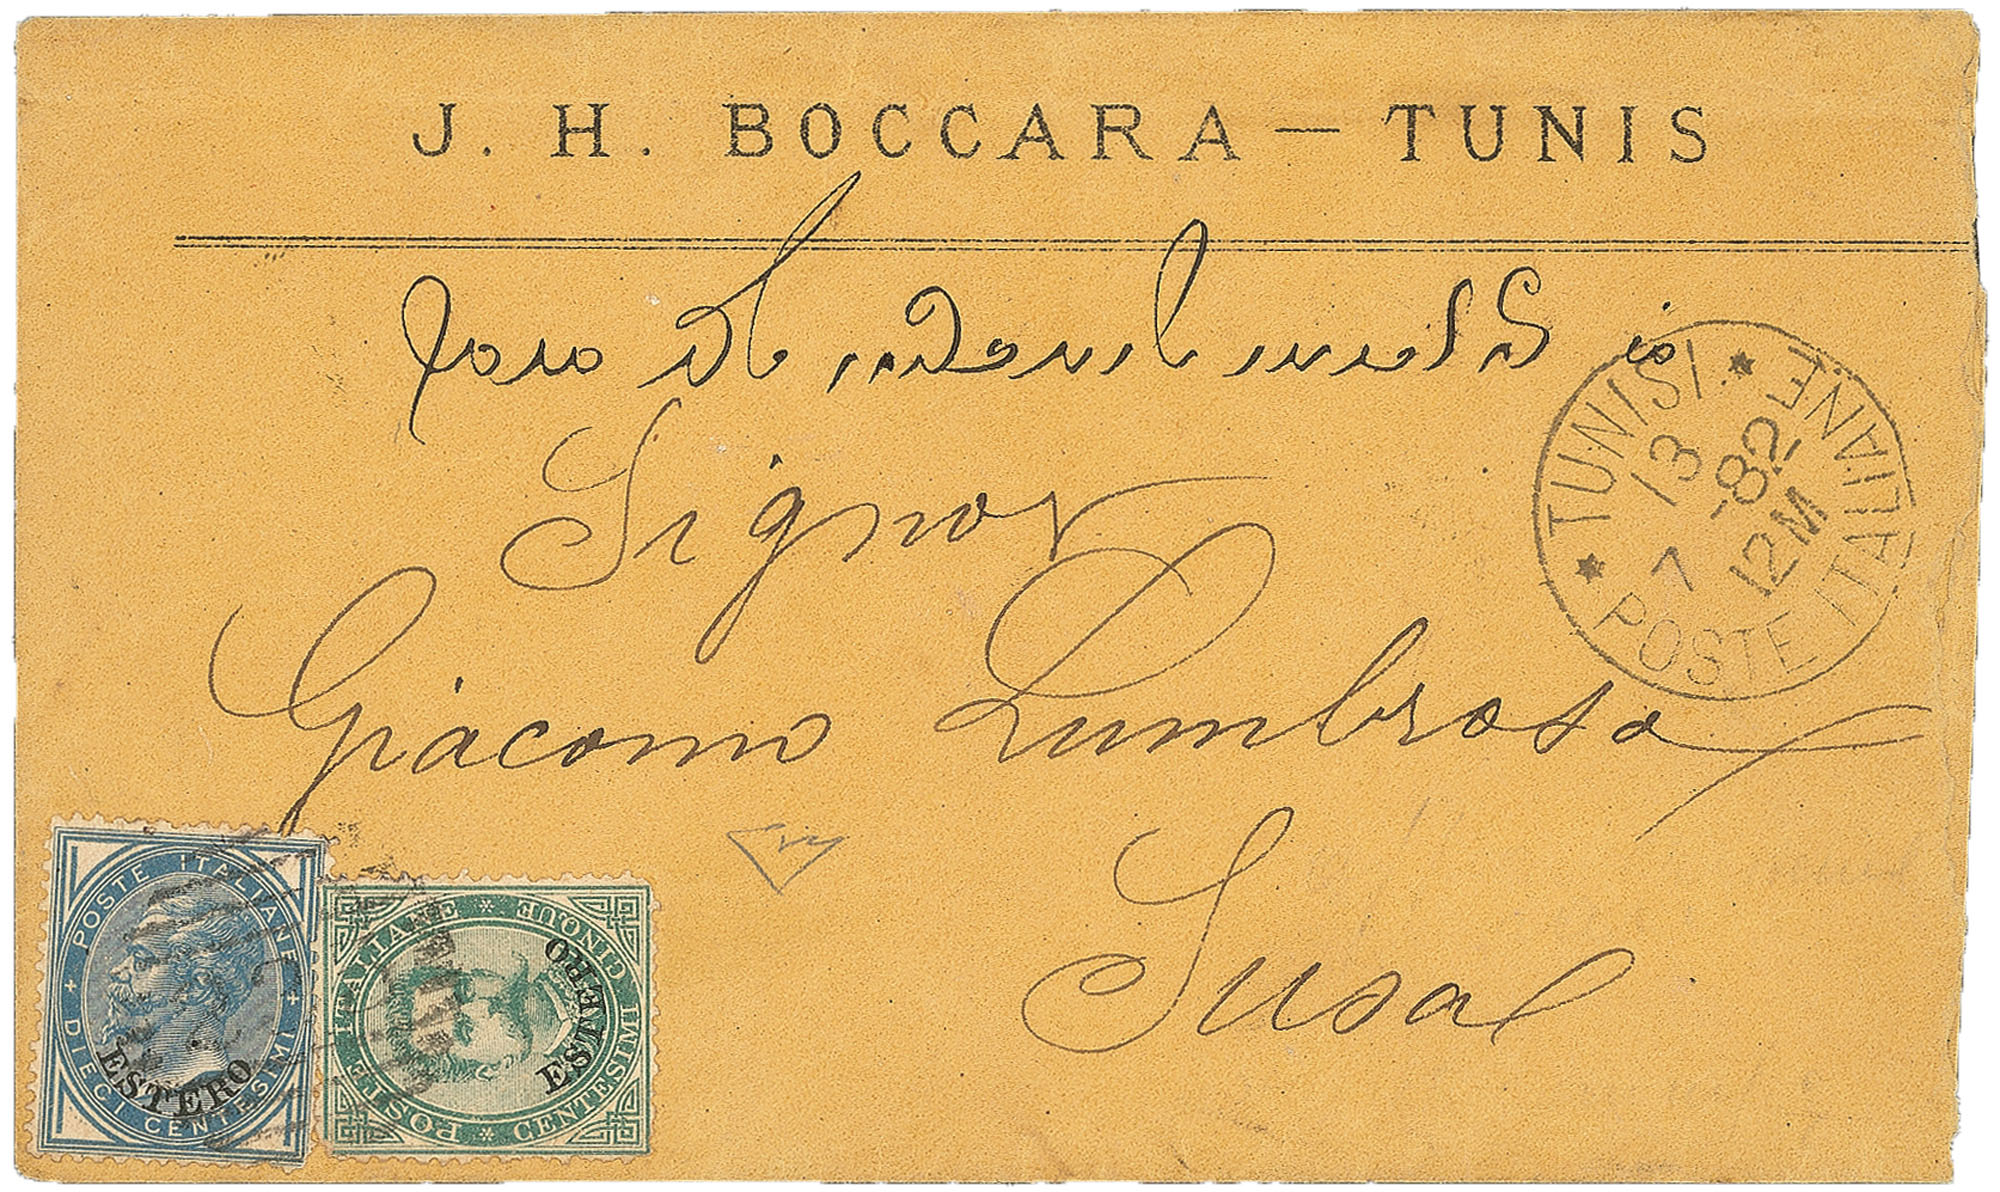 J. H. BOCCARA — TUNIS
Signor
Giacomo Lumbroso
Susa
TUNISI.
POSTE ITALIANE
13
7
-82
12M
POSTE ITALIANE
DIECI CENTESIMI
ESTERO
POSTE ITALIANE
CINQUE CENTESIMI
ESTERO